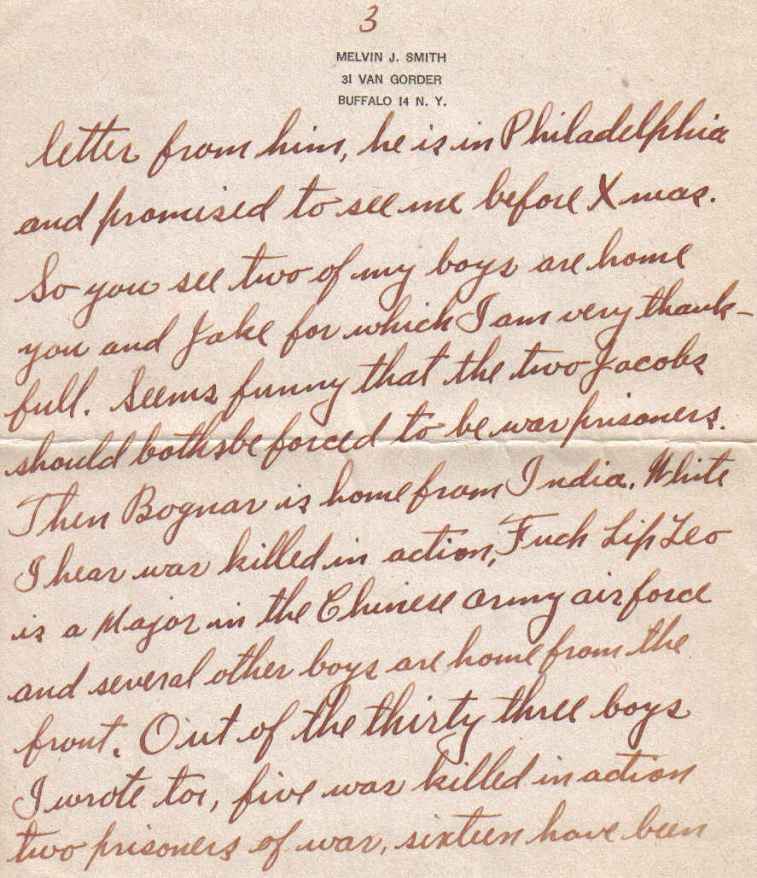 3
MELVIN J. SMITH
31 VAN GORDER
BUFFALO 14 N. Y.
letter from him, he is in Philadelphia
and promised to see me before Xmas.
So you see two of my boys are home
you and Jake for which I am very thank-
full. Seems funny that the two Jacobs
should both be forced to be war prisoners.
Then Bognar is home from India. White
I hear was killed in action, Lip Leo
is a Major in the Chinese army air force
and several other boys are home from the
front. Out of the thirty three boys
I wrote too, five was killed in action
two prisoners of war, sixteen have been